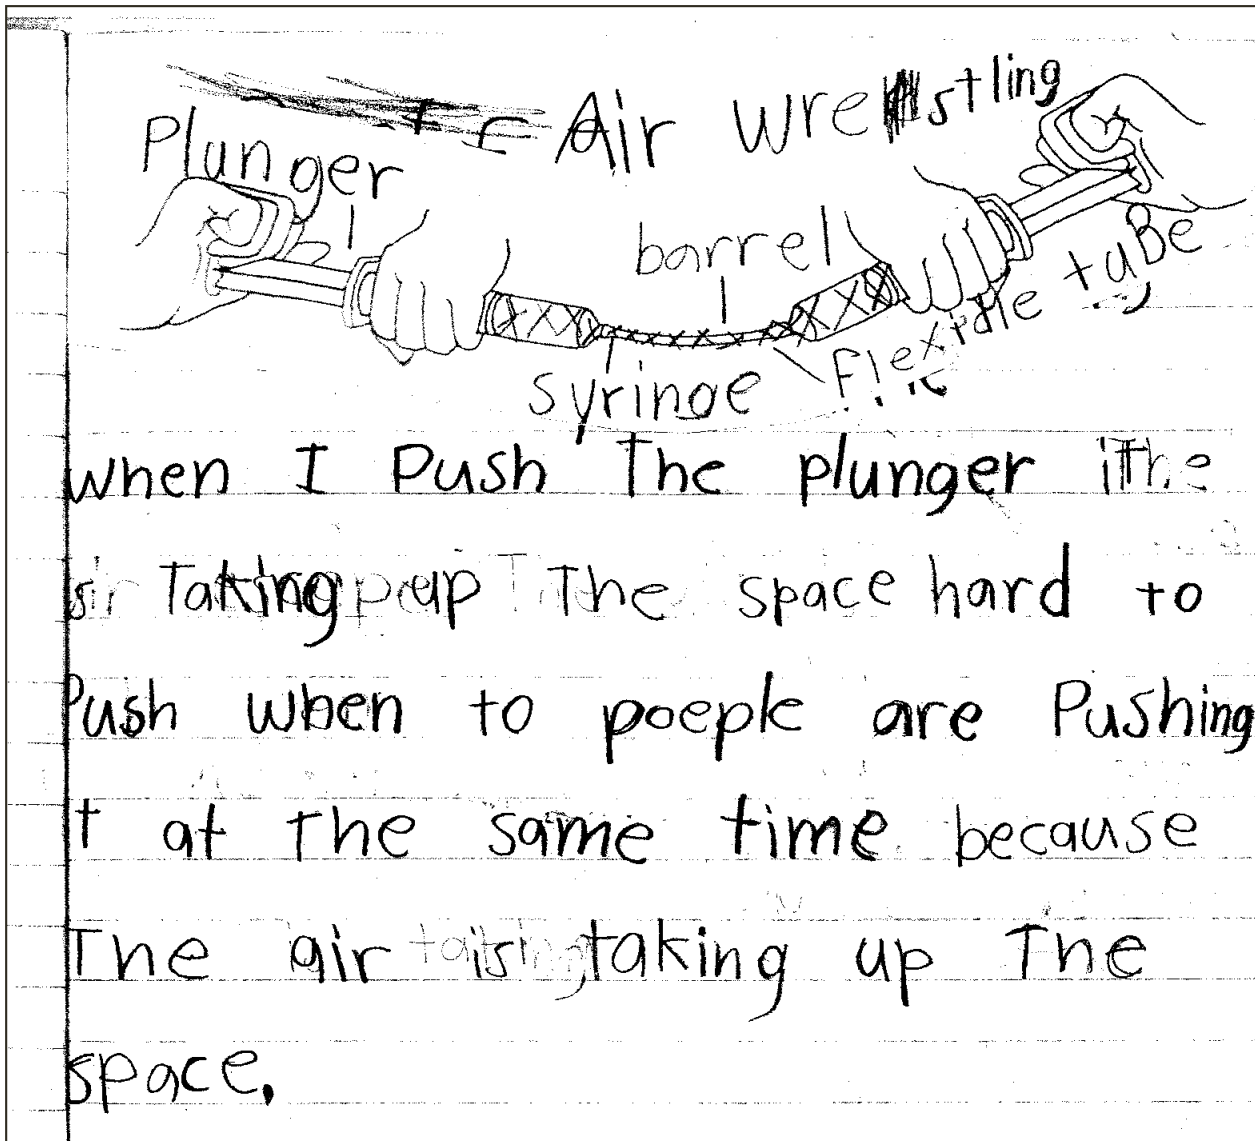 Air wrestling
Plunger
barrel
flexible tuBe
syringe
when I Push The plunger The
air Taking up The space hard to
Push when to poeple are Pushing
it at The same time because
The air is taking up The
space.